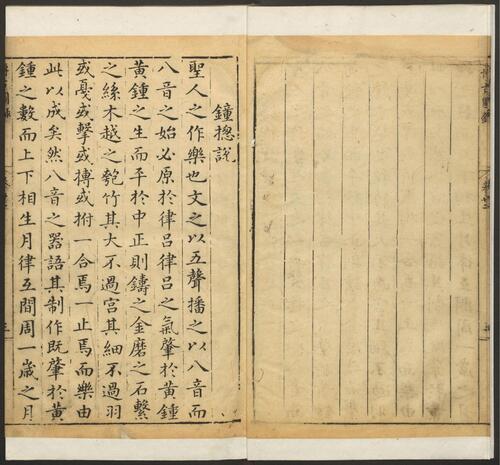 鐘揔說
聖人之作樂也文之以五聲播之以八音而
八音之始必原於律呂律呂之氣肇於黃鍾
黃鍾之生而平於中正則鑄之金磨之石繫
之絲木越之匏竹其大不過宮其細不過羽
或戞或擊或搏或拊一合焉一止焉而樂由
此以成矣然八音之器語其制作旣肇於黃
鍾之數而上下相生月律互間周一歲之月